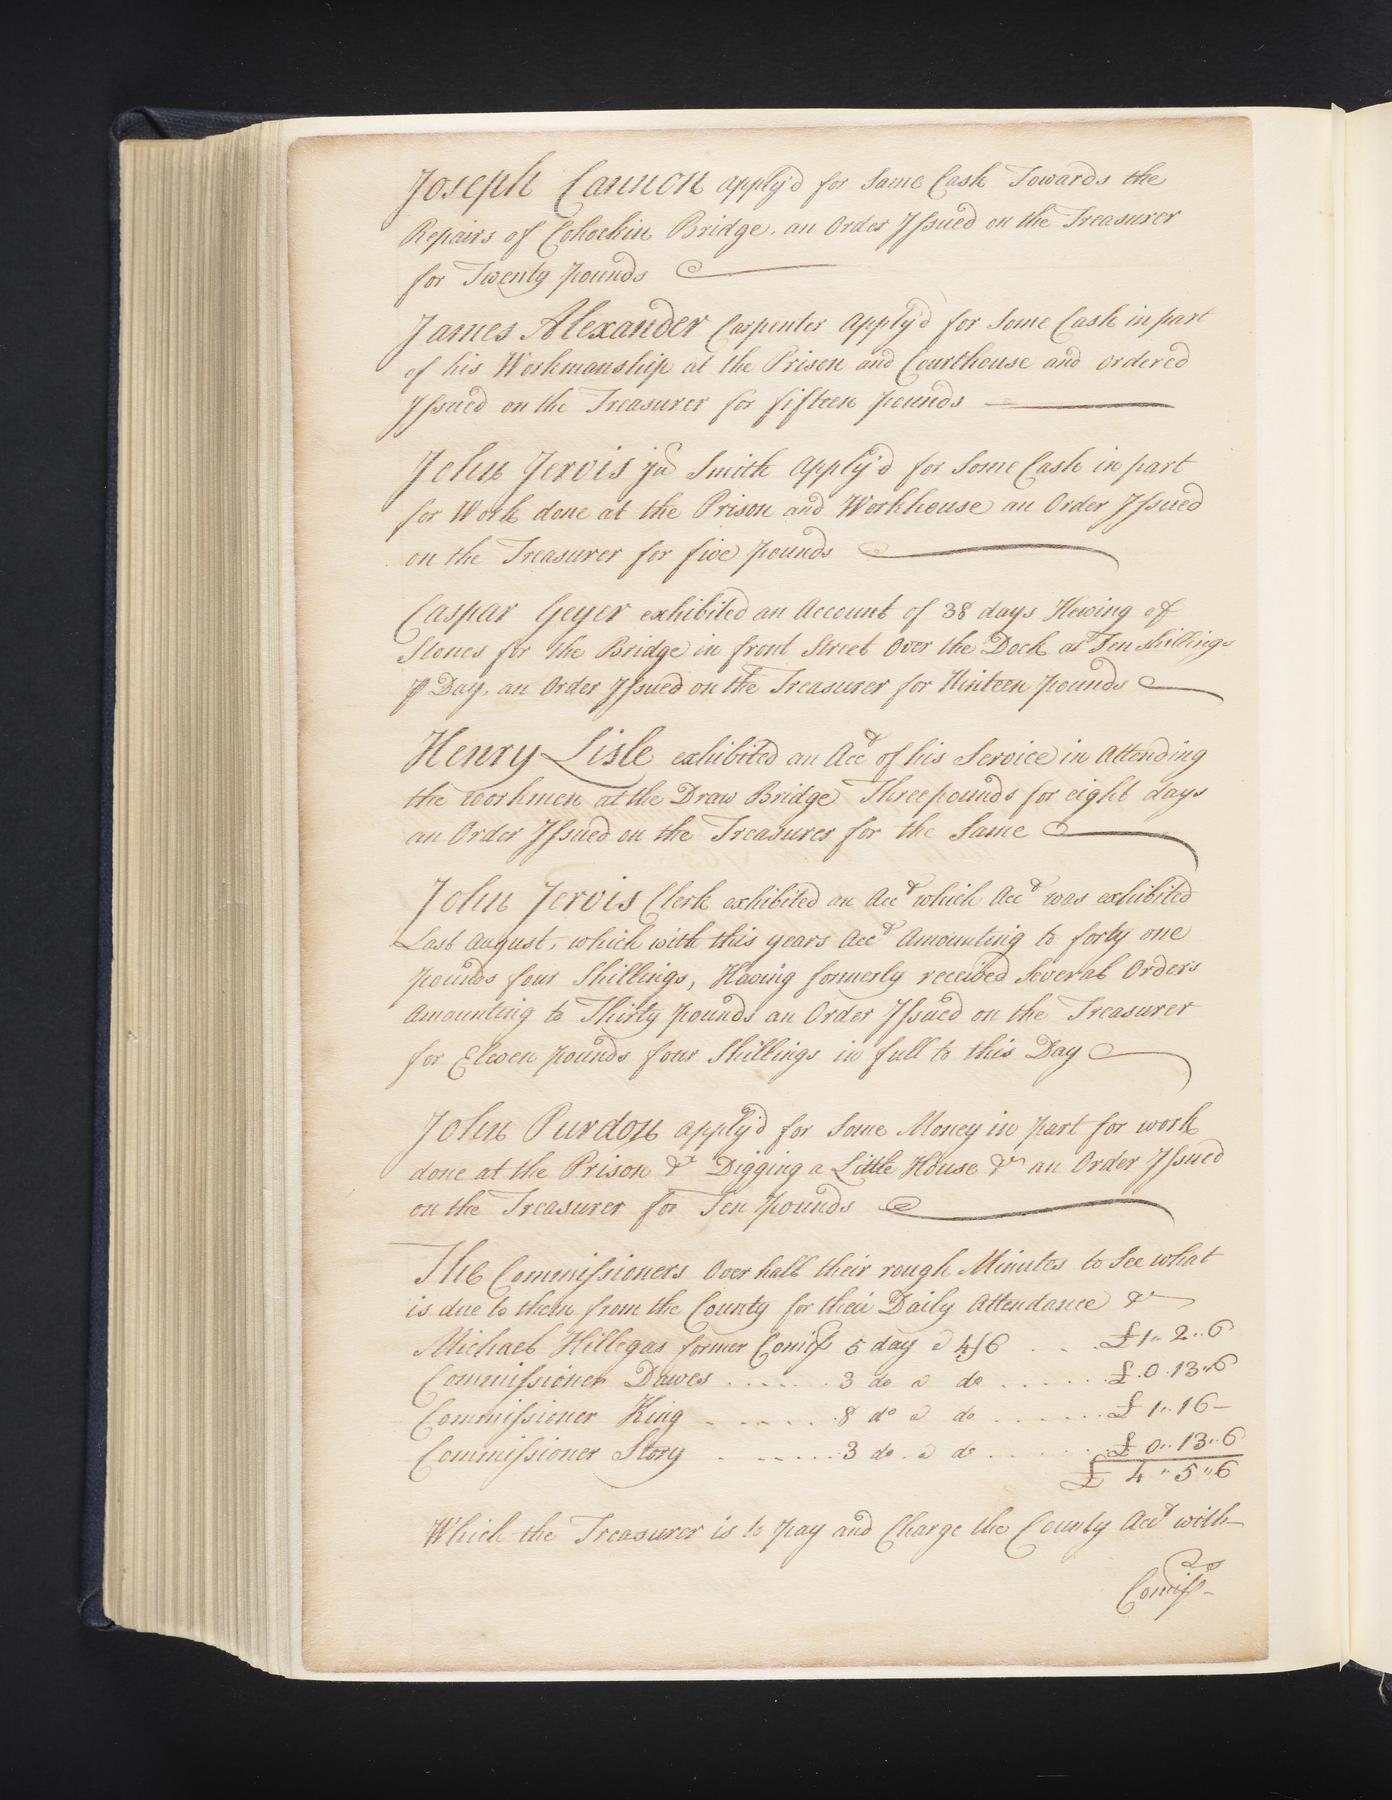 Joseph Cannon apply'd for Some Cash Towards the
Repairs of Cohockin Bridge. an Order Issued on the Treasurer
for Twenty pounds
James Alexander Carpenter apply'd for Some Cash in part
of his Workmanship at the Prison and Courthouse and ordered
Issued on the Treasurer for fifteen pounds
John Jervis junr Smith apply'd for Some Cash in part
for Work done at the Prison and Workhouse an Order Issued
on the Treasurer for five pounds
Caspar Geyer exhibited an Account of 38 days Hewing of
Stones for the Bridge in front Street Over the Dock at Ten shillings
⅌ Day, an Order Issued on the Treasurer for Ninteen pounds
Henry Lisle exhibited an Acct of his Service in Attending
the workmen at the Draw Bridge Three pounds for eight days
an Order Issued on the Treasurer for the Same
John Jervis Clerk exhibited an Acct which Acct was exhibited
Last August, which with this years Acct Amounting to forty one
pounds four Shillings, Having formerly received Several Orders
Amounting to Thirty pounds an Order Issued on the Treasurer
for Eleven pounds four Shillings in full to this Day
John Purdon apply'd for Some Money in part for work
done at the Prison &c Digging a Little House &c an Order Issued
on the Treasurer for Ten pounds
The Commissioners Over hall their rough Minutes to See what
is due to them from the County for their Daily Attendance &c
Michael Hillegas former Comiss 5 day a 4/6 . . . £1,, 2,, 6
Commissioner Dawes . . . . . . 3 do a do . . . . . . £.0.13,,6
Commissioner King . . . . . . 8 do a do . . . . . . £ 1,, 16 –
Commissioner Story . . . . . . 3 do. a do . . . . . . £ 0,, 13,, 6
£ 4 ,, 5 ,, 6
Which the Treasurer is to pay and Charge the County Acct with
Comiss